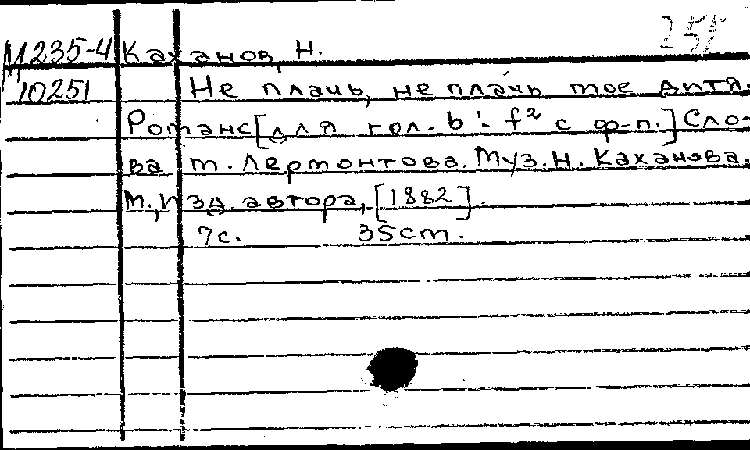 255
М235-4 Каханов, Н.
10251 Не плачь, не плачь мое дитя.
Романс [для гол. b¹- f² с ф-п.] Сло-
ва М. Лермонтова. Муз. Н. Каханова.
М., Изд. автора, [1882].
7с. 35см.